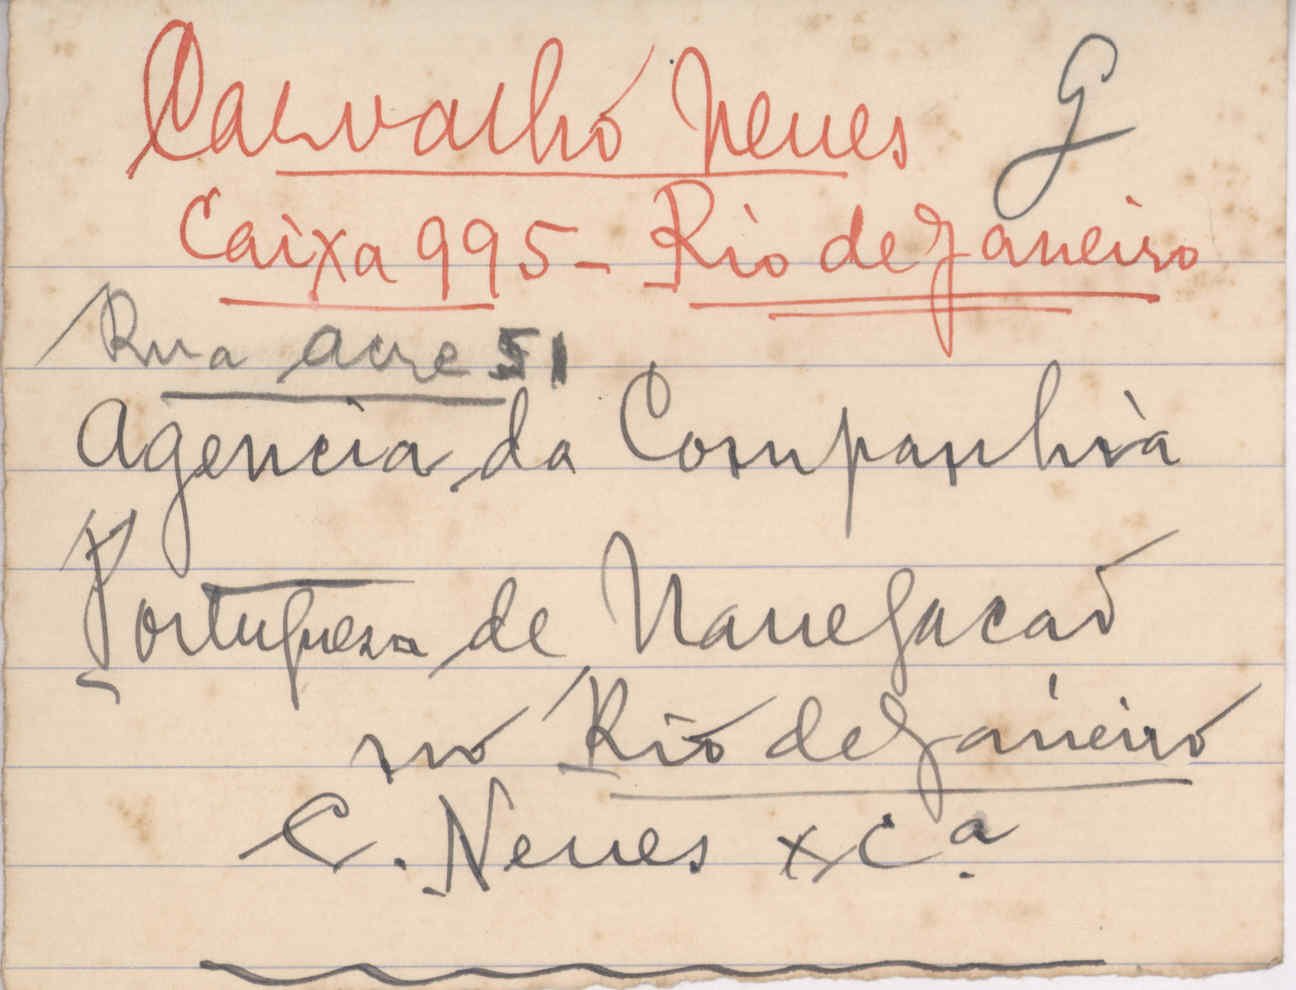 Carvalho Neves G
Caixa 995 - Rio de Janeiro
Rua Acre 51
Agencia da Companhia
Portuguesa de Navegacaō
no Rio de Janeiro
C. Neves & Cª